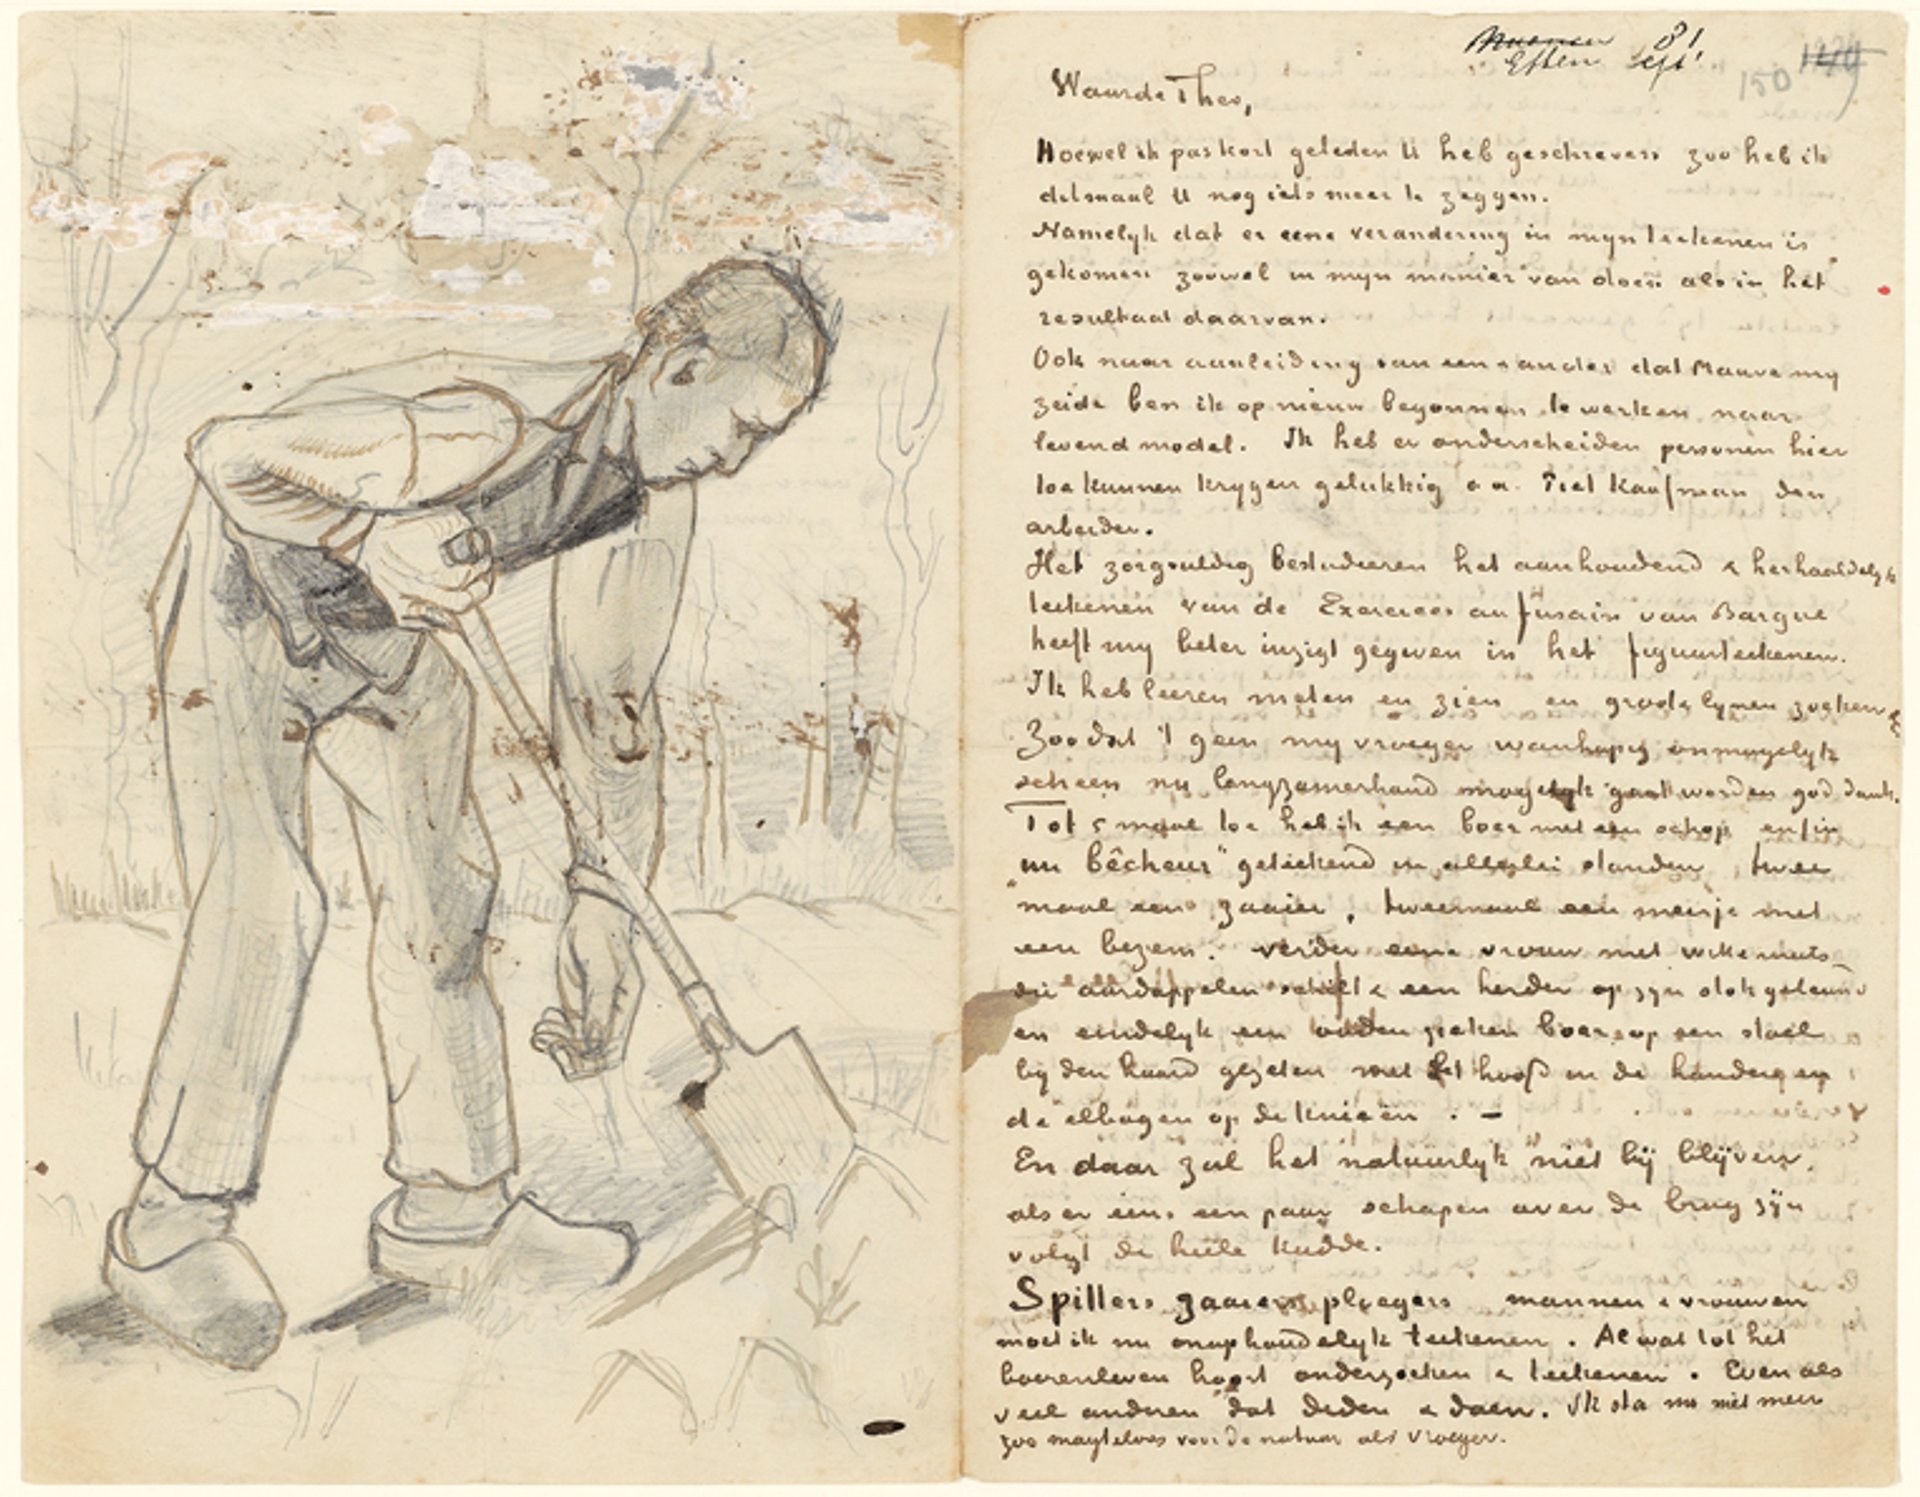 Nuenen 81
Etten Sept!
150 149
Waarde Theo,
Hoewel ik pas kort geleden U heb geschreven zoo heb ik
ditmaal U nog iets meer te zeggen.
Namelyk dat er eene verandering in myn teekenen is
gekomen zoowel in myn manier van doen als in het
resultaat daarvan.
Ook naar aanleiding van een & ander dat Mauve my
zeide ben ik op nieuw begonnen te werken naar
levend model. Ik heb er onderscheiden personen hier
toe kunnen krygen gelukkig o a. Piet Kaufman den
arbeider.
Het zorgvuldig bestudeeren het aanhoudend & herhaaldelyk
teekenen van de Exercices au fusain van Bargue
heeft my beter inzigt gegeven in het figuurteekenen.
Ik heb leeren meten en zien en groote lynen zoeken &c
Zoodat 't geen my vroeger wanhopig onmogelyk
scheen nu langzamerhand mogelyk gaat worden god dank.
Tot 5 maal toe heb ik een boer met een schop enfin
"un bêcheur" geteekend in allerlei standen, twee
maal een zaaier, tweemaal een meisje met
een bezem. Verder eene vrouw met witte muts
die aardappelen schilt & een herder op zyn stok geleund
en eindelyk een ouden zieken boer op een stoel
by den haard gezeten met het hoofd in de handen en
de elbogen op de knieën . –
En daar zal het natuurlyk niet bij blijven.
als er eens een paar schapen over de brug zijn
volgt de heele kudde.
Spitters zaaiers ploegers mannen & vrouwen
moet ik nu onophoudelyk teekenen. Al wat tot het
boerenleven hoort onderzoeken & teekenen. Even als
veel anderen dat deden & doen. Ik sta nu niet meer
zoo magteloos voor de natuur als vroeger.